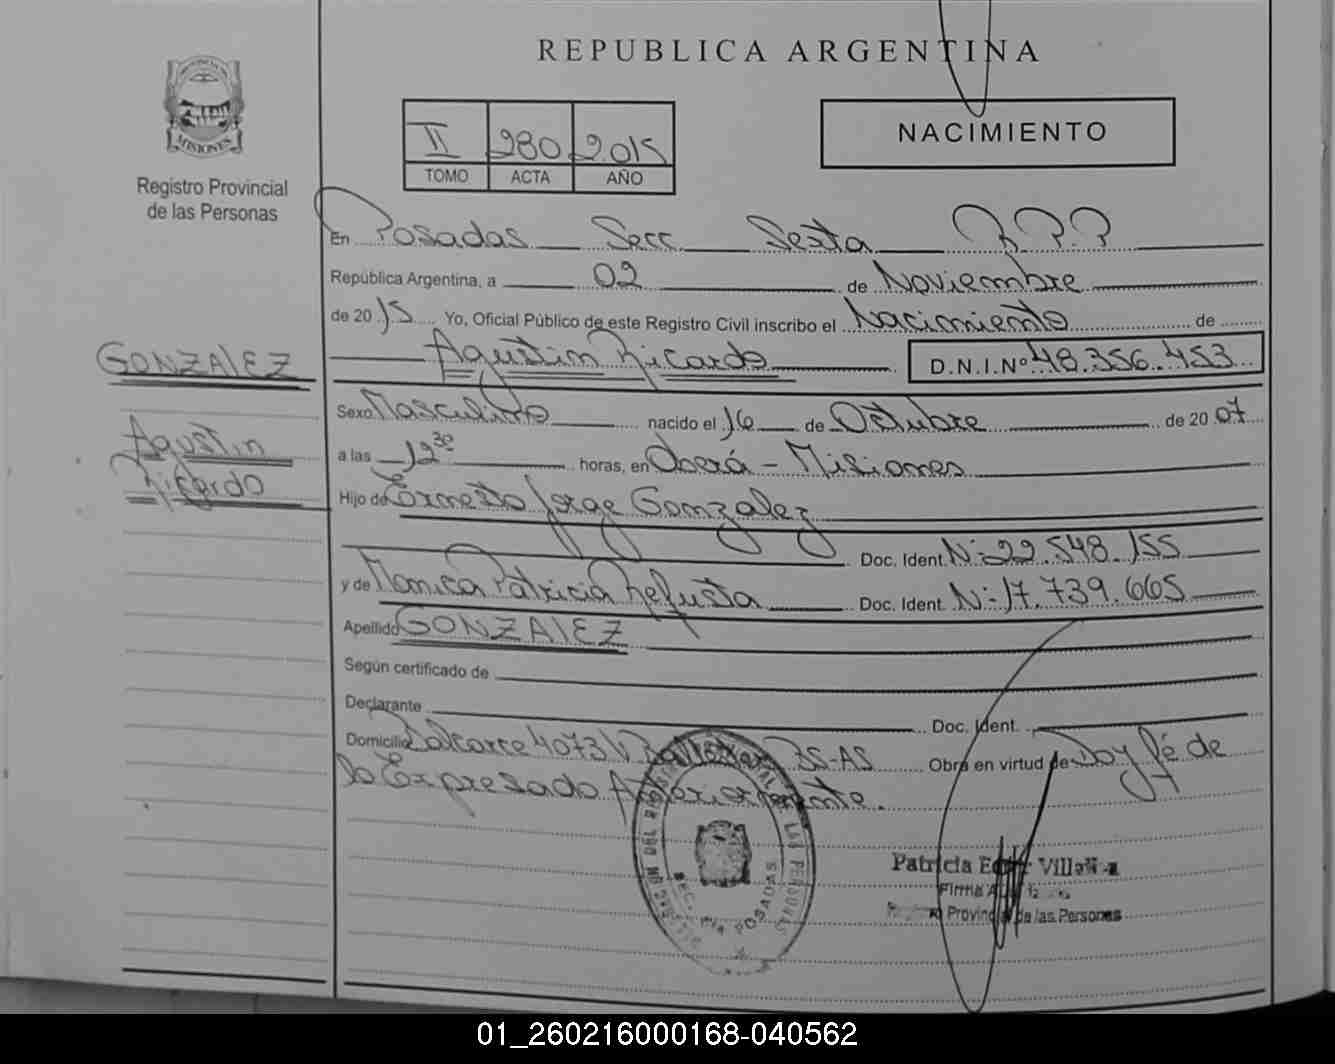 REPUBLICA ARGENTINA
PROVINCIA DE
MISIONES
Registro Provincial
de las Personas
II 280 2.015
TOMO ACTA AÑO
NACIMIENTO
En Posadas Secc Sexta R.P.P
República Argentina, a 02 de Noviembre
de 20 15 Yo, Oficial Público de este Registro Civil inscribo el Nacimiento de
GONZALEZ
Agustin Ricardo D.N.I.Nº 48.356.453
Agustin
Ricardo
Sexo Masculino nacido el 16 de Octubre de 20 07
a las 12 30 horas, en Oberá - Misiones
Hijo de Ernesto Jorge Gonzalez
Doc. Ident. Nº 22.548.155
y de Monica Patricia Refusta Doc. Ident. Nº 17.739.665
Apellido GONZALEZ
Según certificado de
Declarante Doc. Ident.
Domicilio Balcarce 4073 V. Ballester BS-AS Obra en virtud de Doy fé de
lo Expresado Anteriormente.
DEL LAS PERSONAS
POSADAS
Patricia Villa
Firma
Provincial de las Personas
01_260216000168-040562